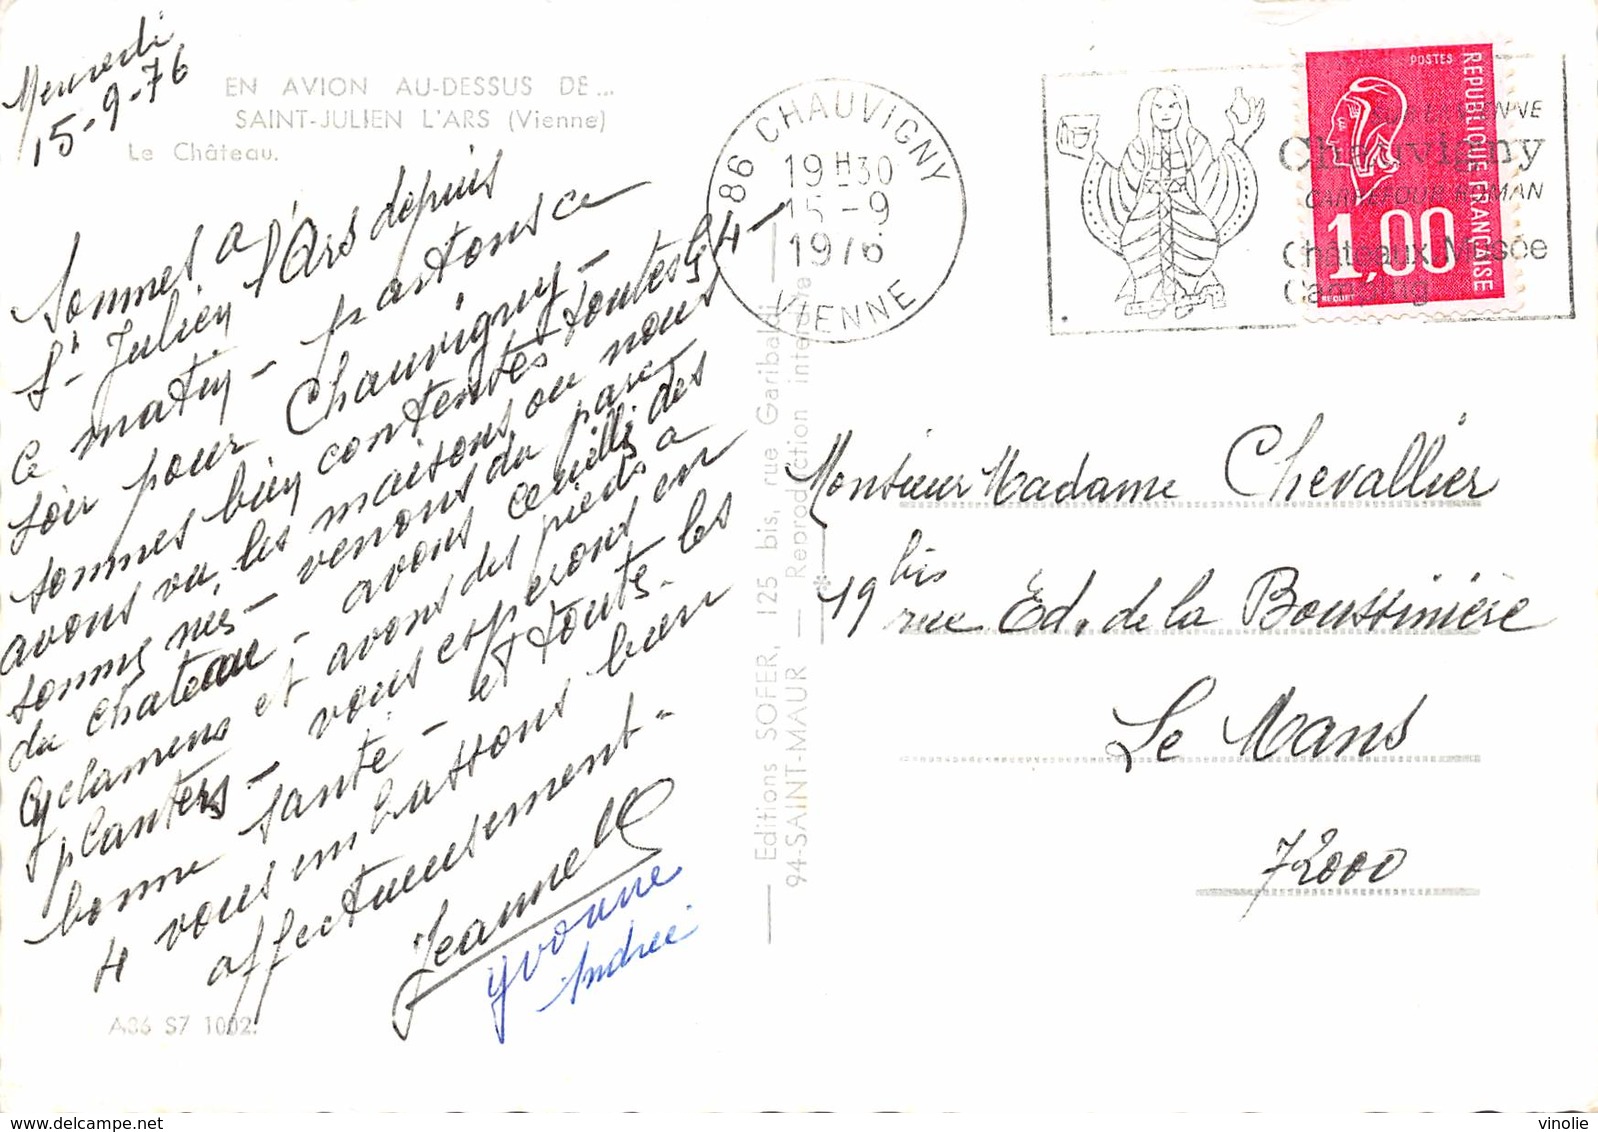 Mercredi
15-9-76
EN AVION AU-DESSUS DE...
SAINT-JULIEN L'ARS (Vienne)
Le Château.
Sommes a
St Julien l'Ars depuis
ce matin - partons ce
soir pour Chauvigny -
sommes bien contentes toutes les 4 -
avons vu, les maisons, ou nous
sommes nés - venons du parc
du chateau - avons cueilli des
cyclamens et avons des pieds a
planter - vous esperons en
bonne santé - et toutes les
4 vous embrassons bien
affectueusement -
Jeannette
Yvonne
Andrée
A86 S7 1002.
Editions SOFER, 125 bis, rue Garibaldi
94-SAINT-MAUR — Reproduction interdite
86 CHAUVIGNY
19 H 30
15 - 9
1976
VIENNE
Chauvigny
CARREFOUR ROMAN
Châteaux Musée
Camping
POSTES
REPUBLIQUE FRANÇAISE
1,00
BEQUET
Monsieur Madame Chevallier
19 bis rue Ed. de la Boussinière
Le Mans
72000
www.delcampe.net
vinolie